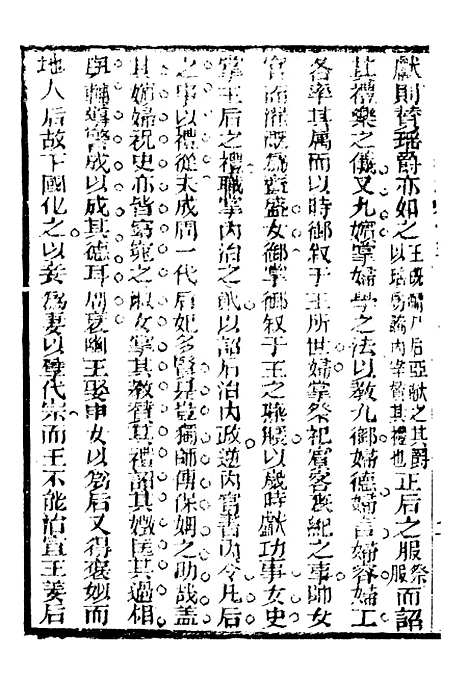 獻則贊瑤爵亦如之王旣酳尸后亞獻之其爵以瑤爲飾內宰贊其禮也正后之服祭服而詔
其禮樂之儀又九嬪掌婦學之法以敎九御婦德婦言婦容婦工
各率其属而以時御叙于王所世婦掌祭祀賓客喪紀之事帥女
宮而濯漑爲齍盛女御掌御叙于王之燕寢以歲時獻功事女史
掌王后之禮職掌內治之貳以詔后治內政逆內宮書內令凡后
之事以禮從大成周一代后妃多賢其豈獨師傅保姆之助哉蓋
其嬪婦祝史亦皆窈窕之淑女掌其敎替其禮詔其媺匡其過相
與輔導警戒以成其德耳周衰幽王娶申女以爲后又得褒姒而
黜人后故下國化之以妾爲妻以孽代宗而王不能治宣王姜后